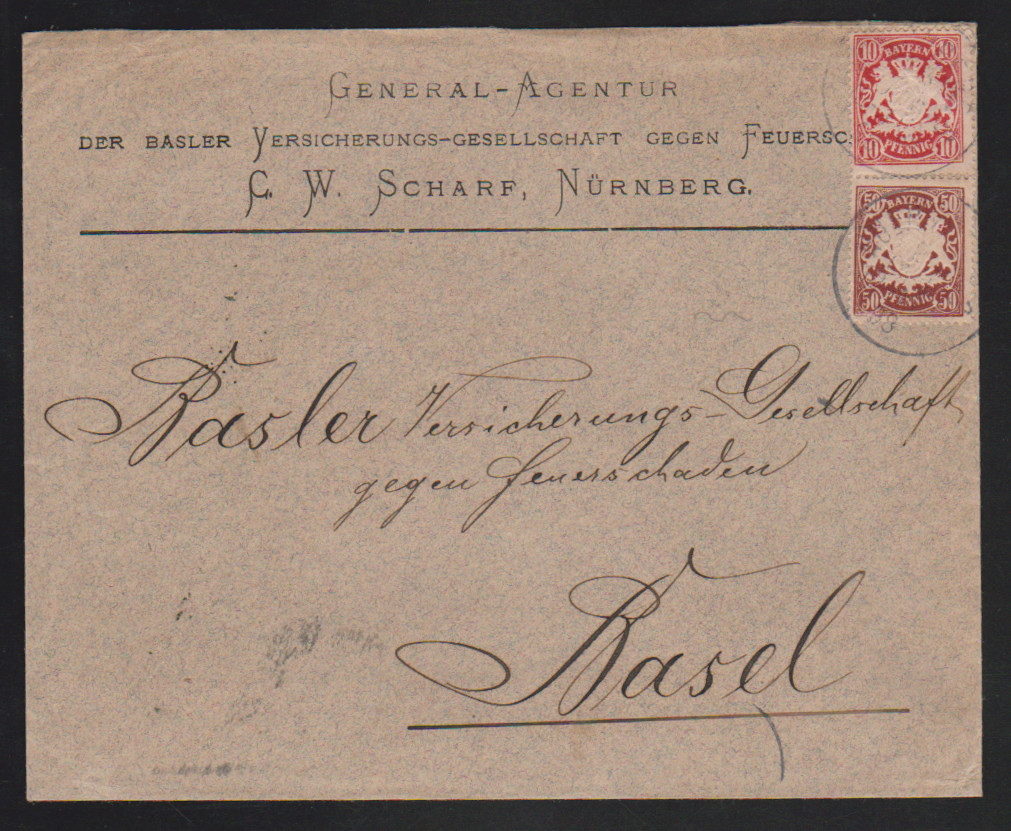 GENERAL-AGENTUR
DER BASLER VERSICHERUNGS-GESELLSCHAFT GEGEN FEUERSC
C. W. SCHARF, NÜRNBERG.
10 BAYERN 10
10 PFENNIG 10
50 BAYERN 50
50 PFENNIG 50
Basler Versicherungs-Gesellschaft
gegen Feuerschaden
Basel